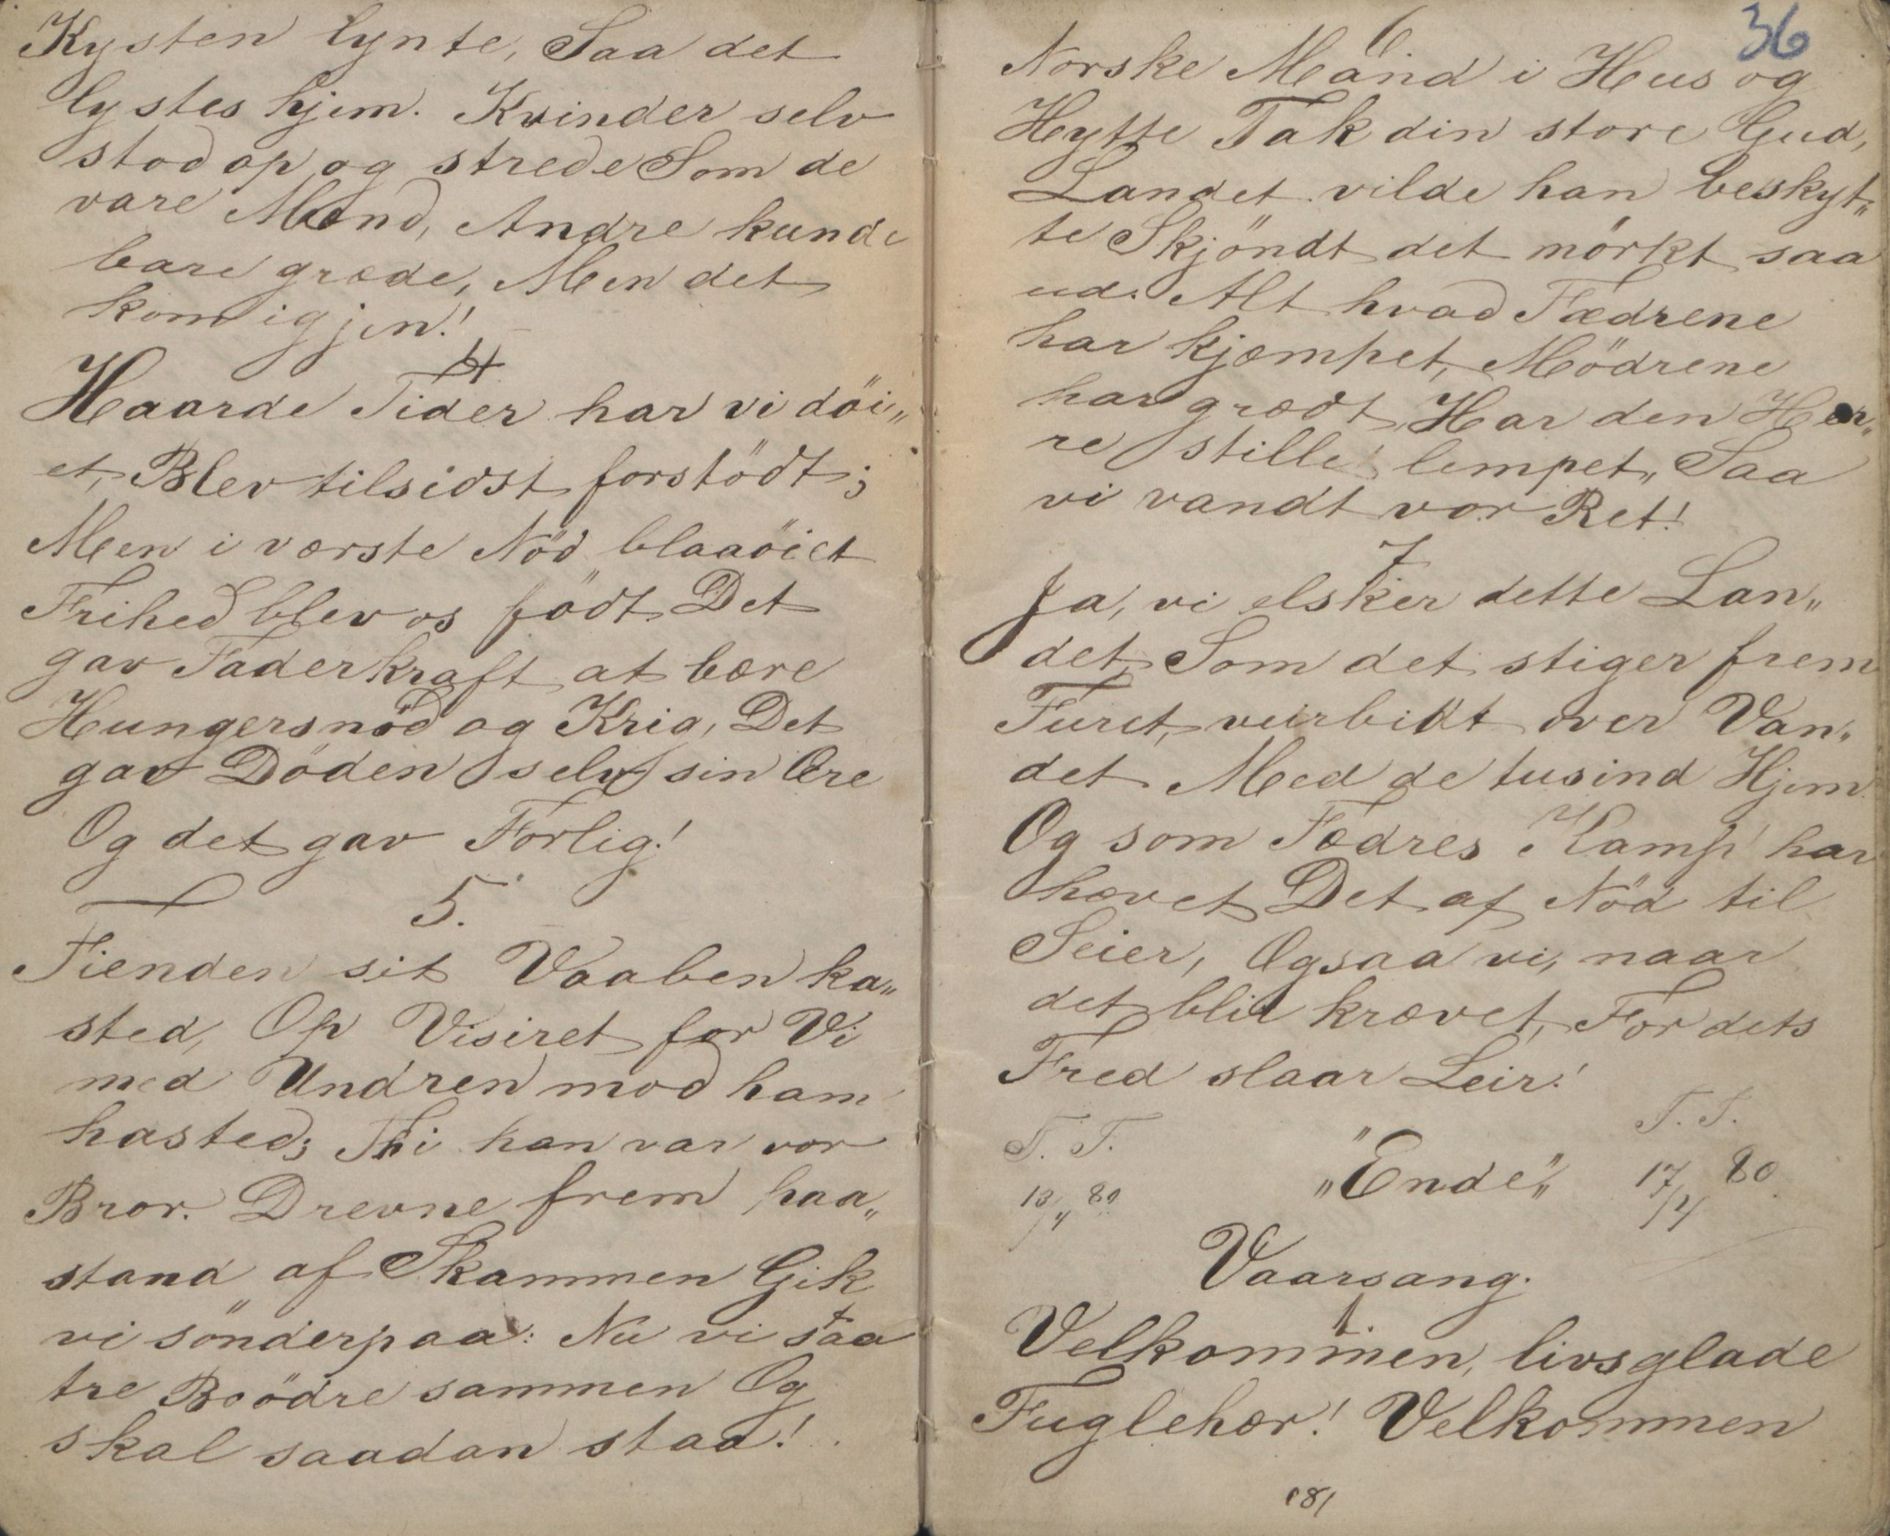 Kysten lynte, Saa det
lystes hjem. Kvinder selv
stod op og strede Som de
vare Mænd, Andre kunde
bare græde, Men det
kom igjen!
4
Haarde Tider har vi döi„
et, Blev tilsidst forstödt;
Men i værste Nöd blaaöiet
Frihed blev os födt. Det
gav Faderkraft at bære
Hungersnöd og Krig, Det
gav Döden selv sin Ære
Og det gav Forlig!
5.
Fienden sit Vaaben ka„
sted, Op Visiret for Vi
med Undren mod ham
hasted; Thi han var vor
Bror. Drevne frem paa„
stand af Skammen Gik
vi sönderpaa: Nu vi staa
tre Brödre sammen Og
skal saadan staa!
36
6
Norske Mand i Hus og
Hytte Tak din store Gud,
Landet vilde han beskyt„
te Skjöndt det mörkt saa
ud. Alt hvad Fædrene
har kjæmpet, Mödrene
har grædt, Har den Her„
re stille lempet, Saa
vi vandt vor Ret!
7
Ja, vi elsker dette Lan„
det, Som det stiger frem
Furet, veirbidt over Van„
det Med de tusind Hjem.
Og som Fædres Kamp har
hævet Det af Nöd til
Seier, Ogsaa vi, naar
det blir krævet, For dets
Fred slaar Leir!
T. T. T. T.
„Ende„ 80
Vaarsang.
1.
Velkommen, livsglade
Fuglehær! Velkommen
181